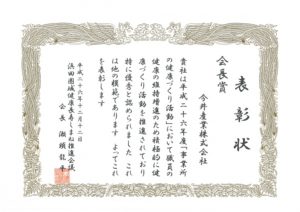 表彰状
会長賞
今井産業株式会社
貴社は平成二十六年度「事業所
の健康づくり活動」において職員の
健康の維持増進のため積極的に健
康づくり活動を推進されており
特に優秀と認められました これ
は他の模範であります よってこれ
を表彰します
平成二十六年十二月十二日
浜田圏域健康長寿しまね推進会議
会長